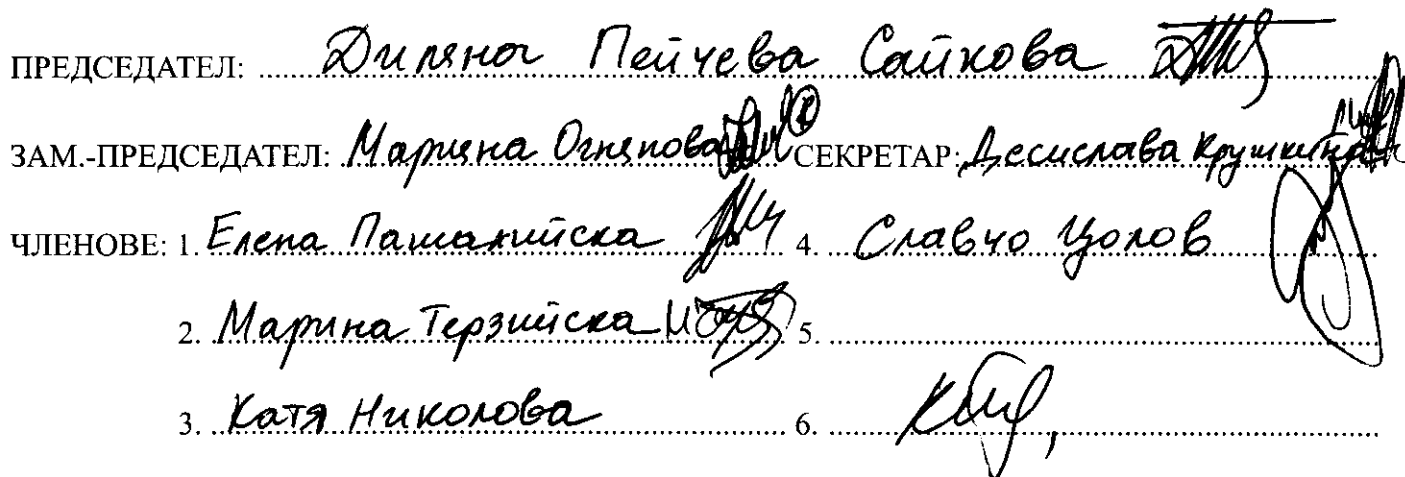 ПРЕДСЕДАТЕЛ: Диляна Пейчева Сайкова
ЗАМ.-ПРЕДСЕДАТЕЛ: Марияна Огнянова СЕКРЕТАР: Десислава Крушкина
ЧЛЕНОВЕ: 1. Елена Пашалийска 4. Славчо Цолов
2. Марина Терзийска 5.
3. Катя Николова 6.